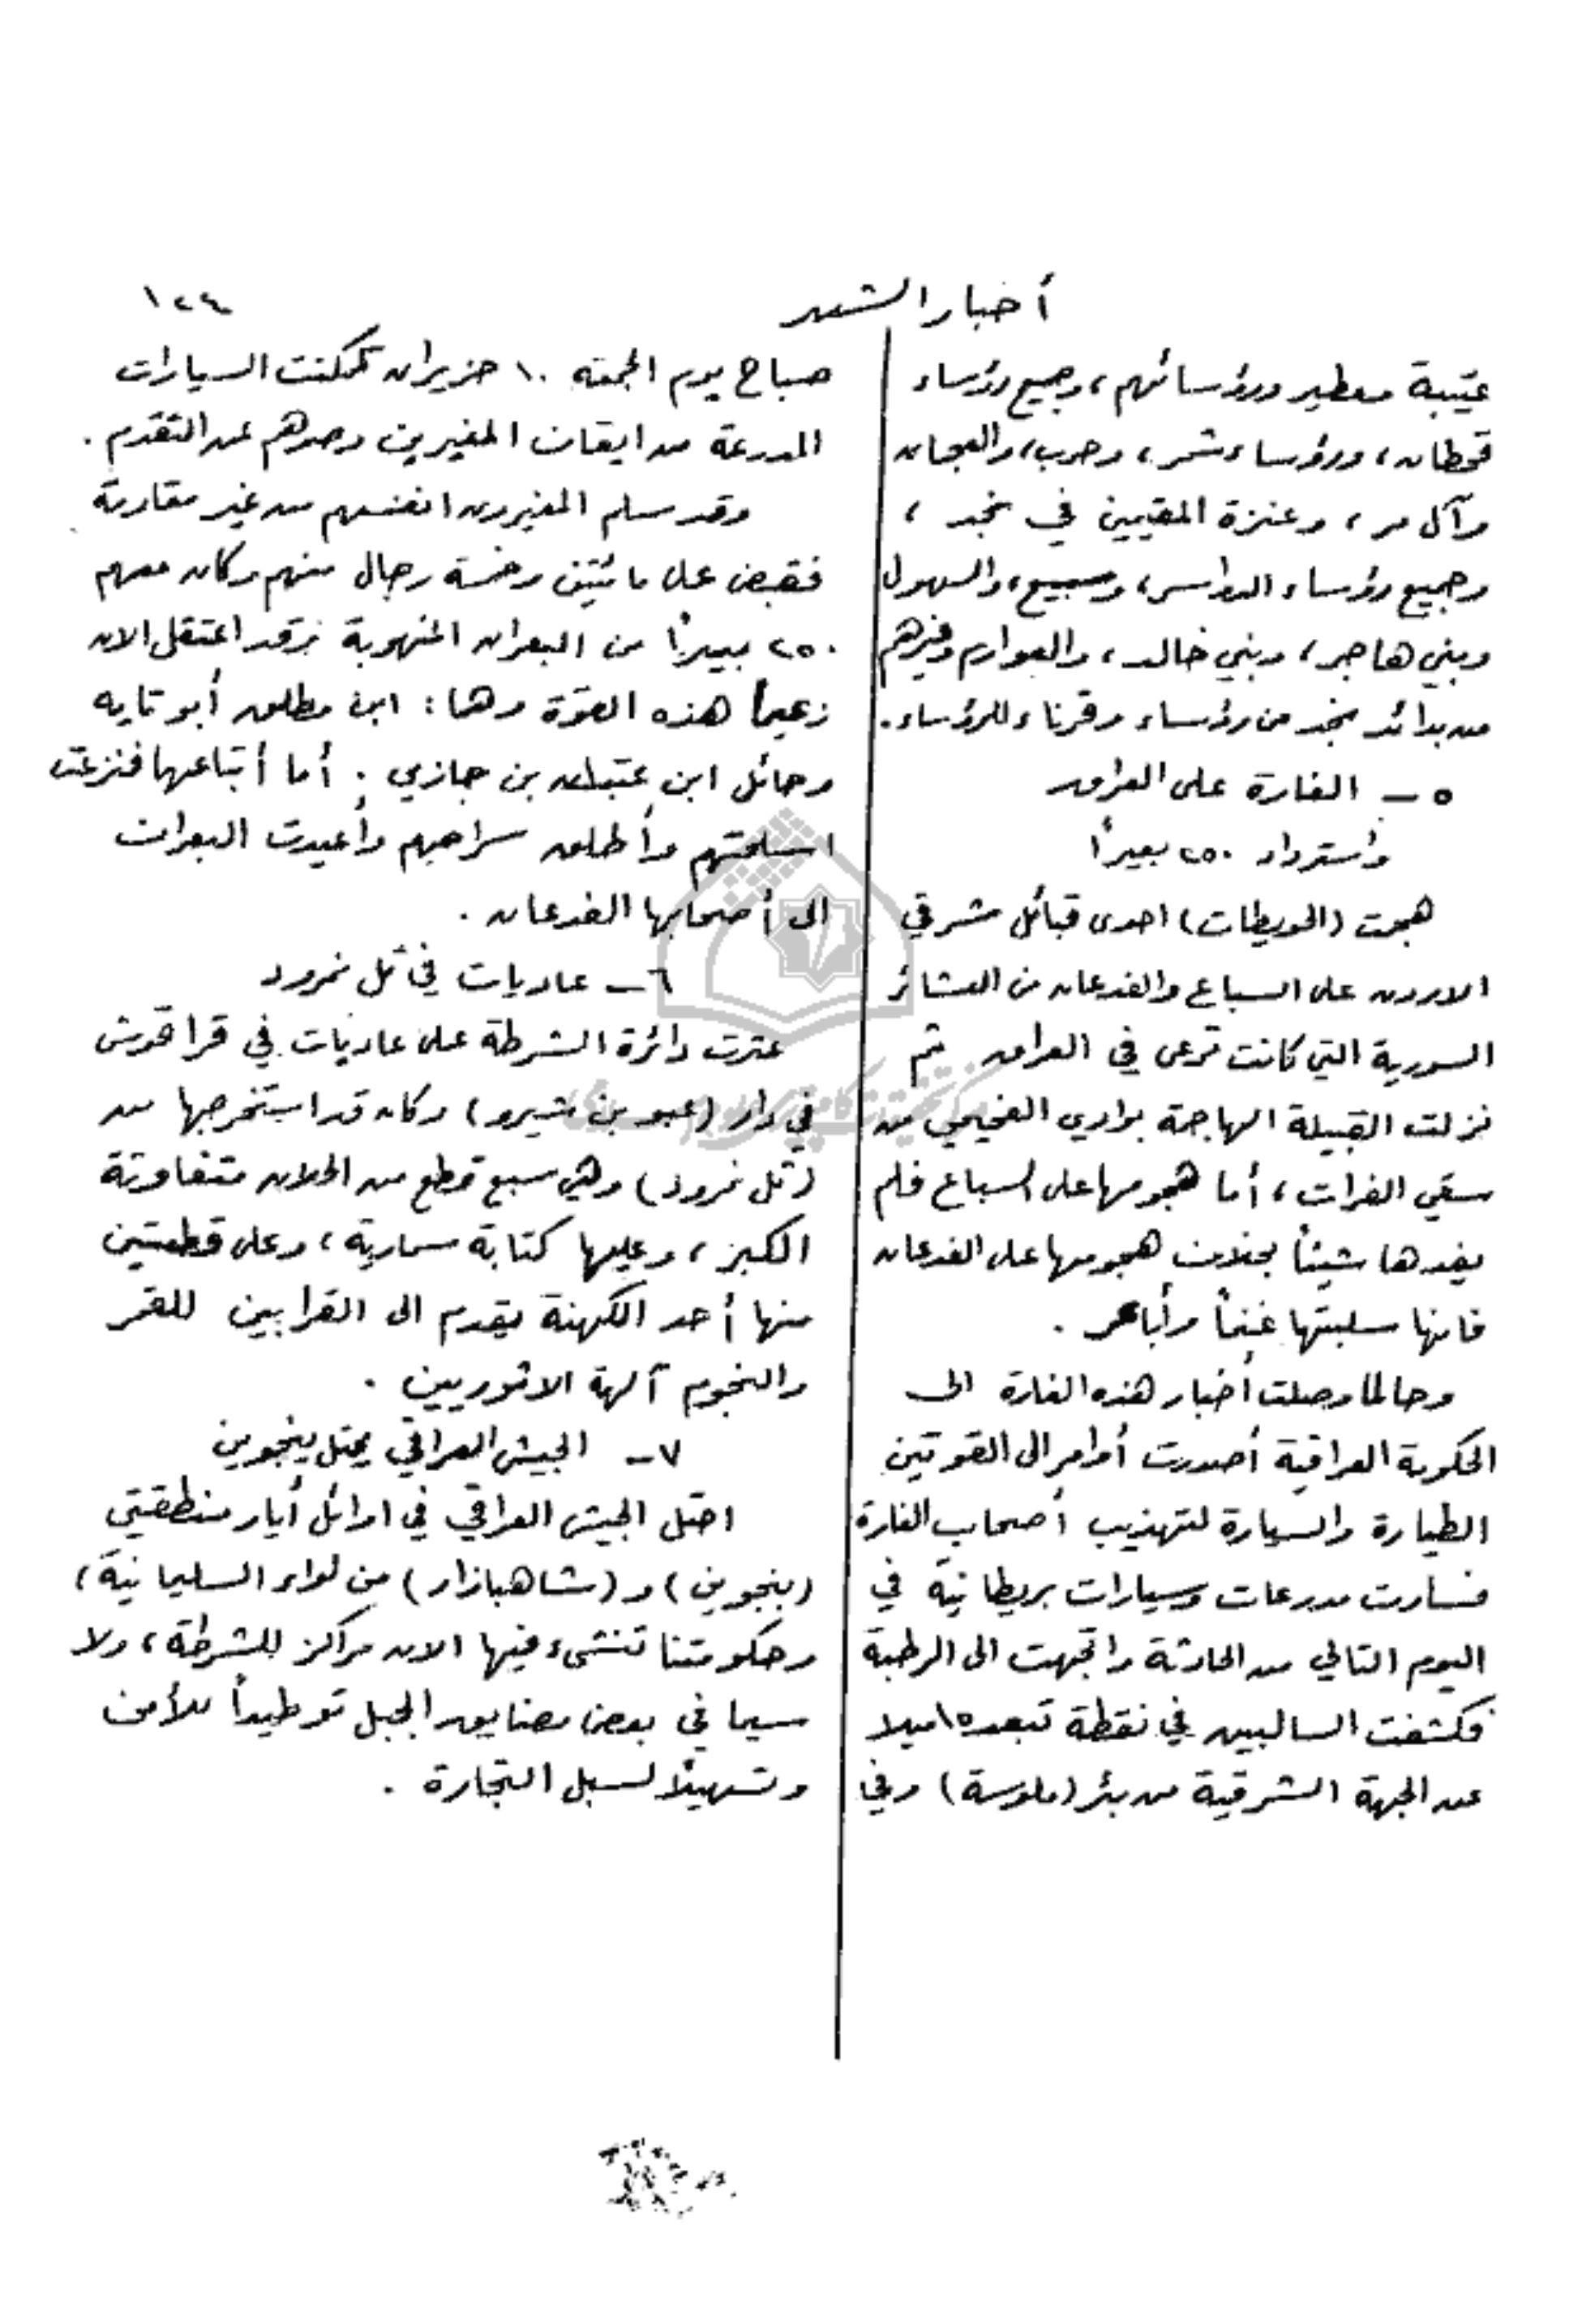 أخبار الشهر
١٢٤
عتيبة ومطير ورؤسائهم، وجميع رؤساء
قحطان، ورؤساء شمر، وحرب، والعجمان
وآل مر، وعنزة المقيمين في نجد،
وجميع رؤساء الدواسر، وسبيع، والسهول
وبني هاجر، وبني خالد، والعوازم وغيرهم
من بدائد نجد من رؤساء وقرناء للرؤساء.
٥ – الغارة على العراق
واسترداد ٢٥٠ بعيراً
هجمت (الحويطات) احدى قبائل مشرقي
الاردن على السباع والفدعان من العشائر
السورية التي كانت ترعى في العراق ثم
نزلت القبيلة الهاجمة بوادي الفحيمي من
سقي الفرات، أما هجومها على السباع فلم
يفدها شيئاً بخلاف هجومها على الفدعان
فانها سلبتها غنماً وأباعر.
وحالما وصلت أخبار هذه الغارة الى
الحكومة العراقية أصدرت أوامر الى القوتين
الطيارة والسيارة لتهذيب أصحاب الغارة
فسارت مدرعات وسيارات بريطانية في
اليوم التالي من الحادثة واتجهت الى الرطبة
فكشفت السالبين في نقطة تبعد ١٥ ميلا
عن الجهة الشرقية من بئر (ملوسة) وفي
صباح يوم الجمعة ١٠ حزيران تمكنت السيارات
المدرعة من ايقاف المغيرين وصدهم عن التقدم.
وقد سلم المغيرون انفسهم من غير مقاومة
فقبض على مائتين وخمسة رجال منهم وكان معهم
٢٥٠ بعيراً من البعران المنهوبة وقد اعتقل الان
زعيما هذه القوة وهما: ابن مطلق أبو تايه
وحائل ابن عتبان بن جازي. أما أتباعهما فنزعت
اسلحتهم وأطلق سراحهم وأعيدت البعران
الى أصحابها الفدعان.
٦ – عاديات في تل نمرود
عثرت دائرة الشرطة على عاديات في قراقوش
في دار (عبو بن شيرو) وكان قد استخرجها من
(تل نمرود) وهي سبع قطع من الحلان متفاوتة
الكبر، وعليها كتابة سمارية، وعلى قطعتين
منها أحد الكهنة يقدم الى القرابين للقمر
والنجوم آلهة الاثوريين.
٧ – الجيش العراقي يحتل بنجوين
احتل الجيش العراقي في اوائل أيار منطقتي
(بنجوين) و(شاهبازار) من لواء السليمانية،
وحكومتنا تنشئ فيها الان مراكز للشرطة، ولا
سيما في بعض مضايق الجبل توطيداً للأمن
وتسهيلاً لسبل التجارة.